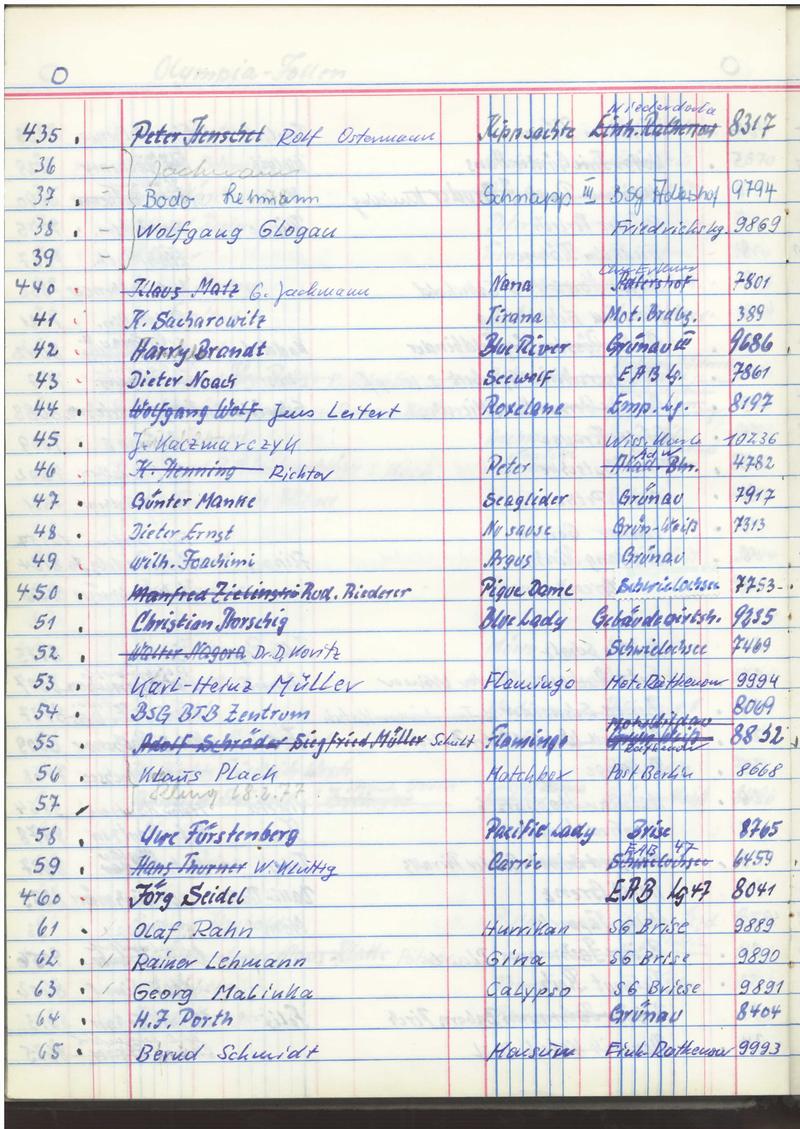 O Olympia-Jollen O
Niederdorla
435 . Peter Henschel Rolf Ostermann Kippsachte Einh. Rathenow 8317
36 - Jachmann
37 . - Bodo Lehmann Schnapp III BSG Adlershof 9794
38 . - Wolfgang Glogau Friedrichshg. 9869
39 -
440 . Klaus Matz G. Jachmann Nana Adlershof 7801
41 . K. Sacharowitz Tirana Mot. Brdbg. 389
42 . Harry Brandt Blue River Grünau III 9686
43 . Dieter Noack Seewolf EAB Lg. 7861
44 . Wolfgang Wolf Jens Leitert Roxelane Emp. Lg. 8197
45 . J. Kaczmarczyk 10236
46 . K. Henning Richter Peter AdW 4782
47 . Günter Manke Seaglider Grünau 7917
48 . Dieter Ernst Grün-Weiß 7313
49 . Wilh. Joachimi Argus Grünau
450 . Manfred Zielinski Rud. Riederer Pique Dame Schwielochsee 7753
51 . Christian Morschig Blue Lady Gebäudewirtsch. 9235
52 . Walter Nagora Dr. D. Koritz Schwielochsee 7469
53 . Karl-Heinz Müller Flamingo Mot. Rathenow 9994
54 . BSG BTB Zentrum 8069
55 . Adolf Schröder Siegfried Müller Schult Flamingo Rathenow 8832
56 . Klaus Plack Matchbox Post Berlin 8668
57 18.2.77.
58 . Uwe Fürstenberg Pacific Lady Brise 8765
EAB 47
59 . Hans Thurner W. Klüttig Carrie Schwielochsee 6459
460 . Jörg Seidel EAB Lg 47 8041
61 . Olaf Rahn Hurrikan SG Brise 9889
62 . Rainer Lehmann Gina SG Brise 9890
63 . Georg Malinka Calypso SG Briese 9891
64 . H.J. Porth Grünau 8404
65 . Bernd Schmidt Einh. Rathenow 9993